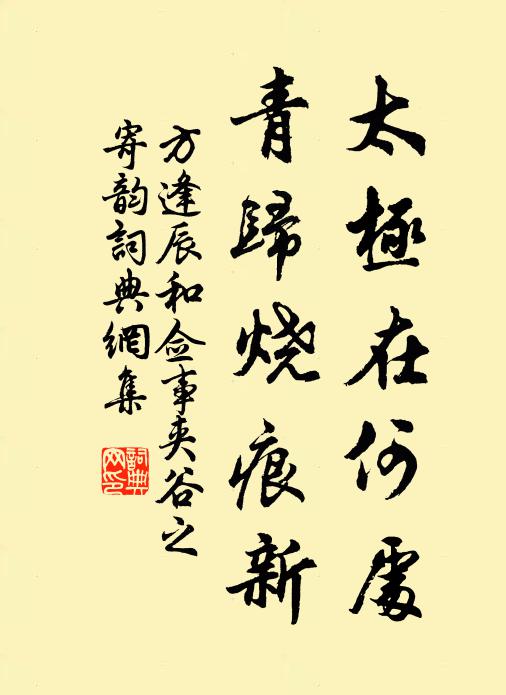 太極在何處
青歸烧痕新
方逢辰和佥事夹谷之
寄韵詞典網集
詞典網印